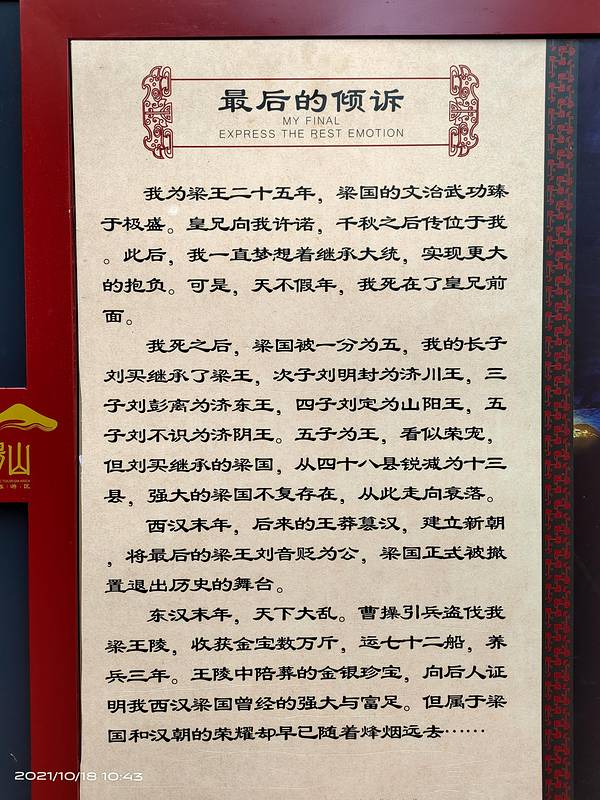 最后的倾诉
MY FINAL
EXPRESS THE REST EMOTION
我为梁王二十五年，梁国的文治武功臻
于极盛。皇兄向我许诺，千秋之后传位于我
。此后，我一直梦想着继承大统，实现更大
的抱负。可是，天不假年，我死在了皇兄前
面。
我死之后，梁国被一分为五，我的长子
刘买继承了梁王，次子刘明封为济川王，三
子刘彭离为济东王，四子刘定为山阳王，五
子刘不识为济阴王。五子为王，看似荣宠，
但刘买继承的梁国，从四十八县锐减为十三
县，强大的梁国不复存在，从此走向衰落。
西汉末年，后来的王莽篡汉，建立新朝
，将最后的梁王刘音贬为公，梁国正式被撤
置退出历史的舞台。
东汉末年，天下大乱。曹操引兵盗伐我
梁王陵，收获金宝数万斤，运七十二船，养
兵三年。王陵中陪葬的金银珍宝，向后人证
明我西汉梁国曾经的强大与富足。但属于梁
国和汉朝的荣耀却早已随着烽烟远去……
山
2021/10/18 10:43